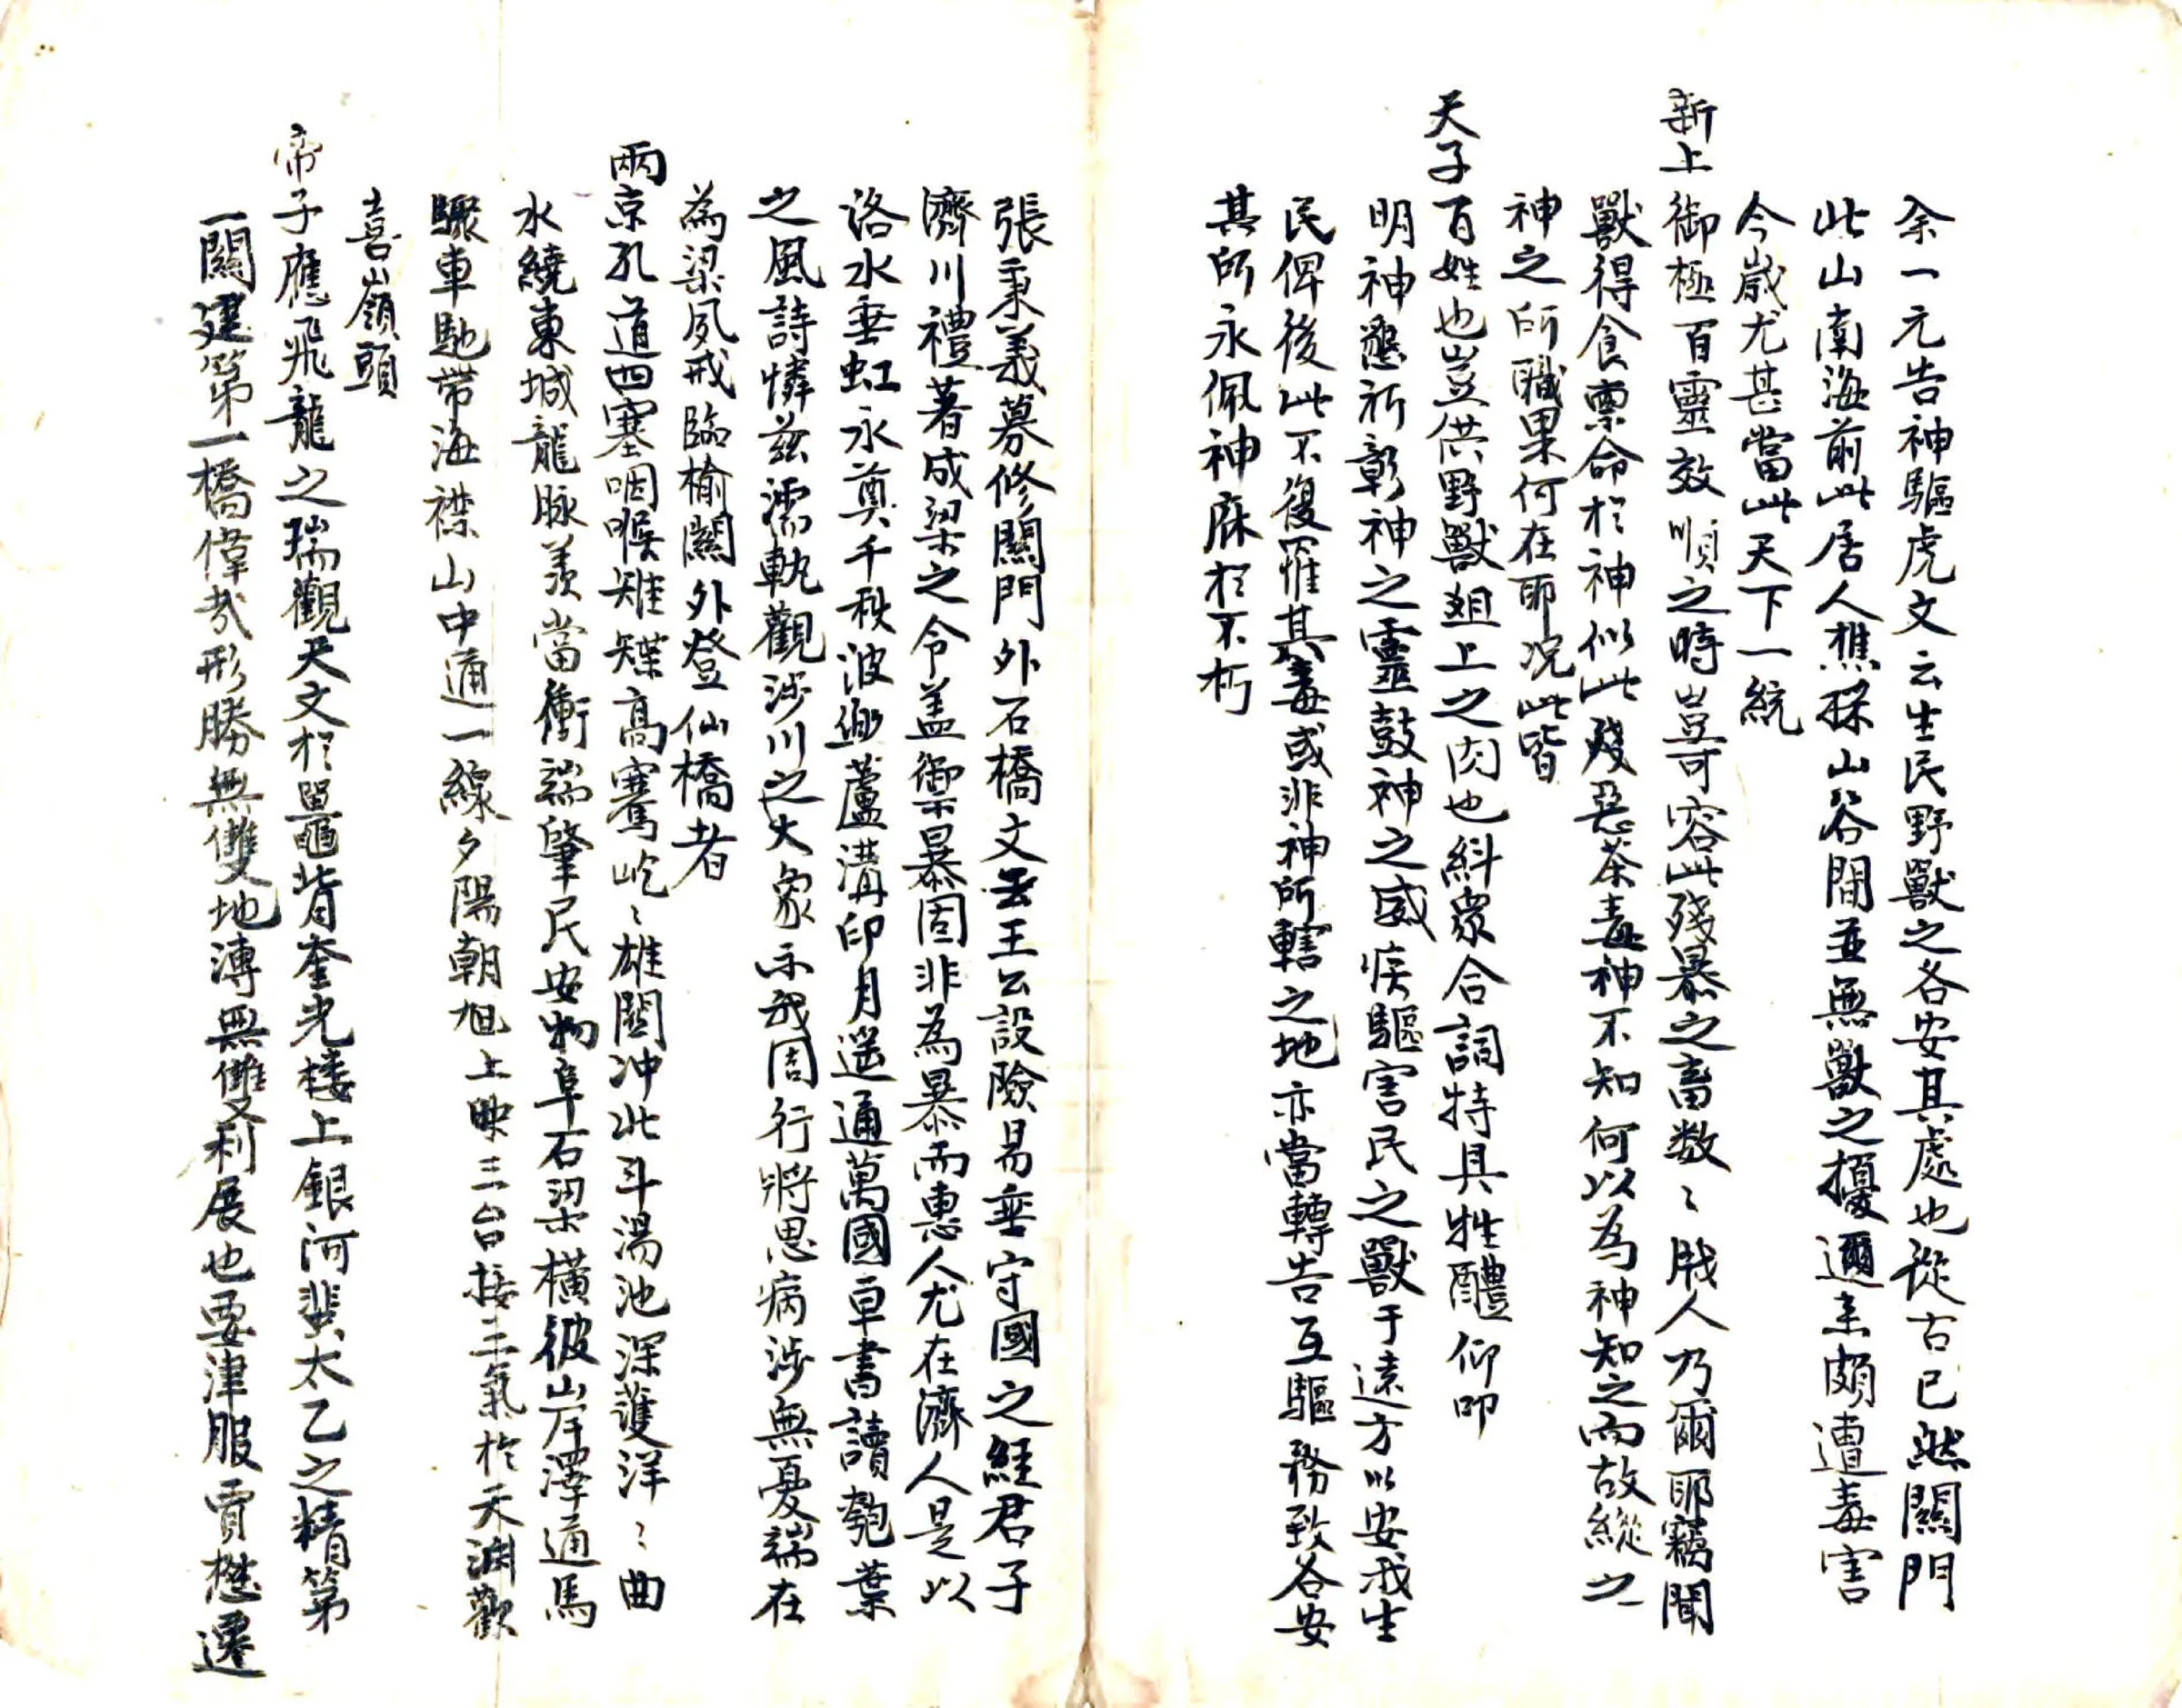 余一元告神驅虎文云生民野獸之各安其處也從古已然關門
此山南海前此居人樵採山谷間並無獸之擾邇来頗遭毒害
今歲尤甚當此天下一統
新上御極百靈效順之時豈可容此殘暴之畜数〻戕人乃爾耶竊聞
獸得食禀命於神似此殘惡荼毒神不知何以為神知之而故縱之
神之所職果何在耶况此皆
天子百姓也豈供野獸俎上之肉也糾衆合詞特具牲醴仰叩
明神懇祈彰神之靈鼓神之威疾驅害民之獸于遠方以安我生
民俾後此不復罹其毒或非神所轄之地亦當轉告互驅務致各安
其所永佩神庥於不朽
張秉義募修關門外石橋文云王公設險易垂守國之経君子
濟川禮著成梁之令盖禦暴固非為暴而惠人尤在濟人是以
洛水垂虹永奠千秋波卧蘆溝印月遥通萬國車書讀匏葉
之風詩憐兹濡軌觀涉川之大象示我周行將思病涉無憂端在
為梁夙戒臨榆關外登仙橋者
兩京孔道四塞咽喉雉堞高騫屹〻雄關冲北斗湯池深護洋〻曲
水繞東城龍脉羙當衝端肇民安物阜石梁横彼岸澤通馬
驟車馳带海襟山中通一線夕陽朝旭上映三台接二氣於天淵歡
喜嶺頭
帝子應飛龍之瑞觀天文於黽背奎光楼上銀河斐太乙之精第
一關建第一橋偉哉形勝無雙地溥無雙利展也要津服賈懋遷